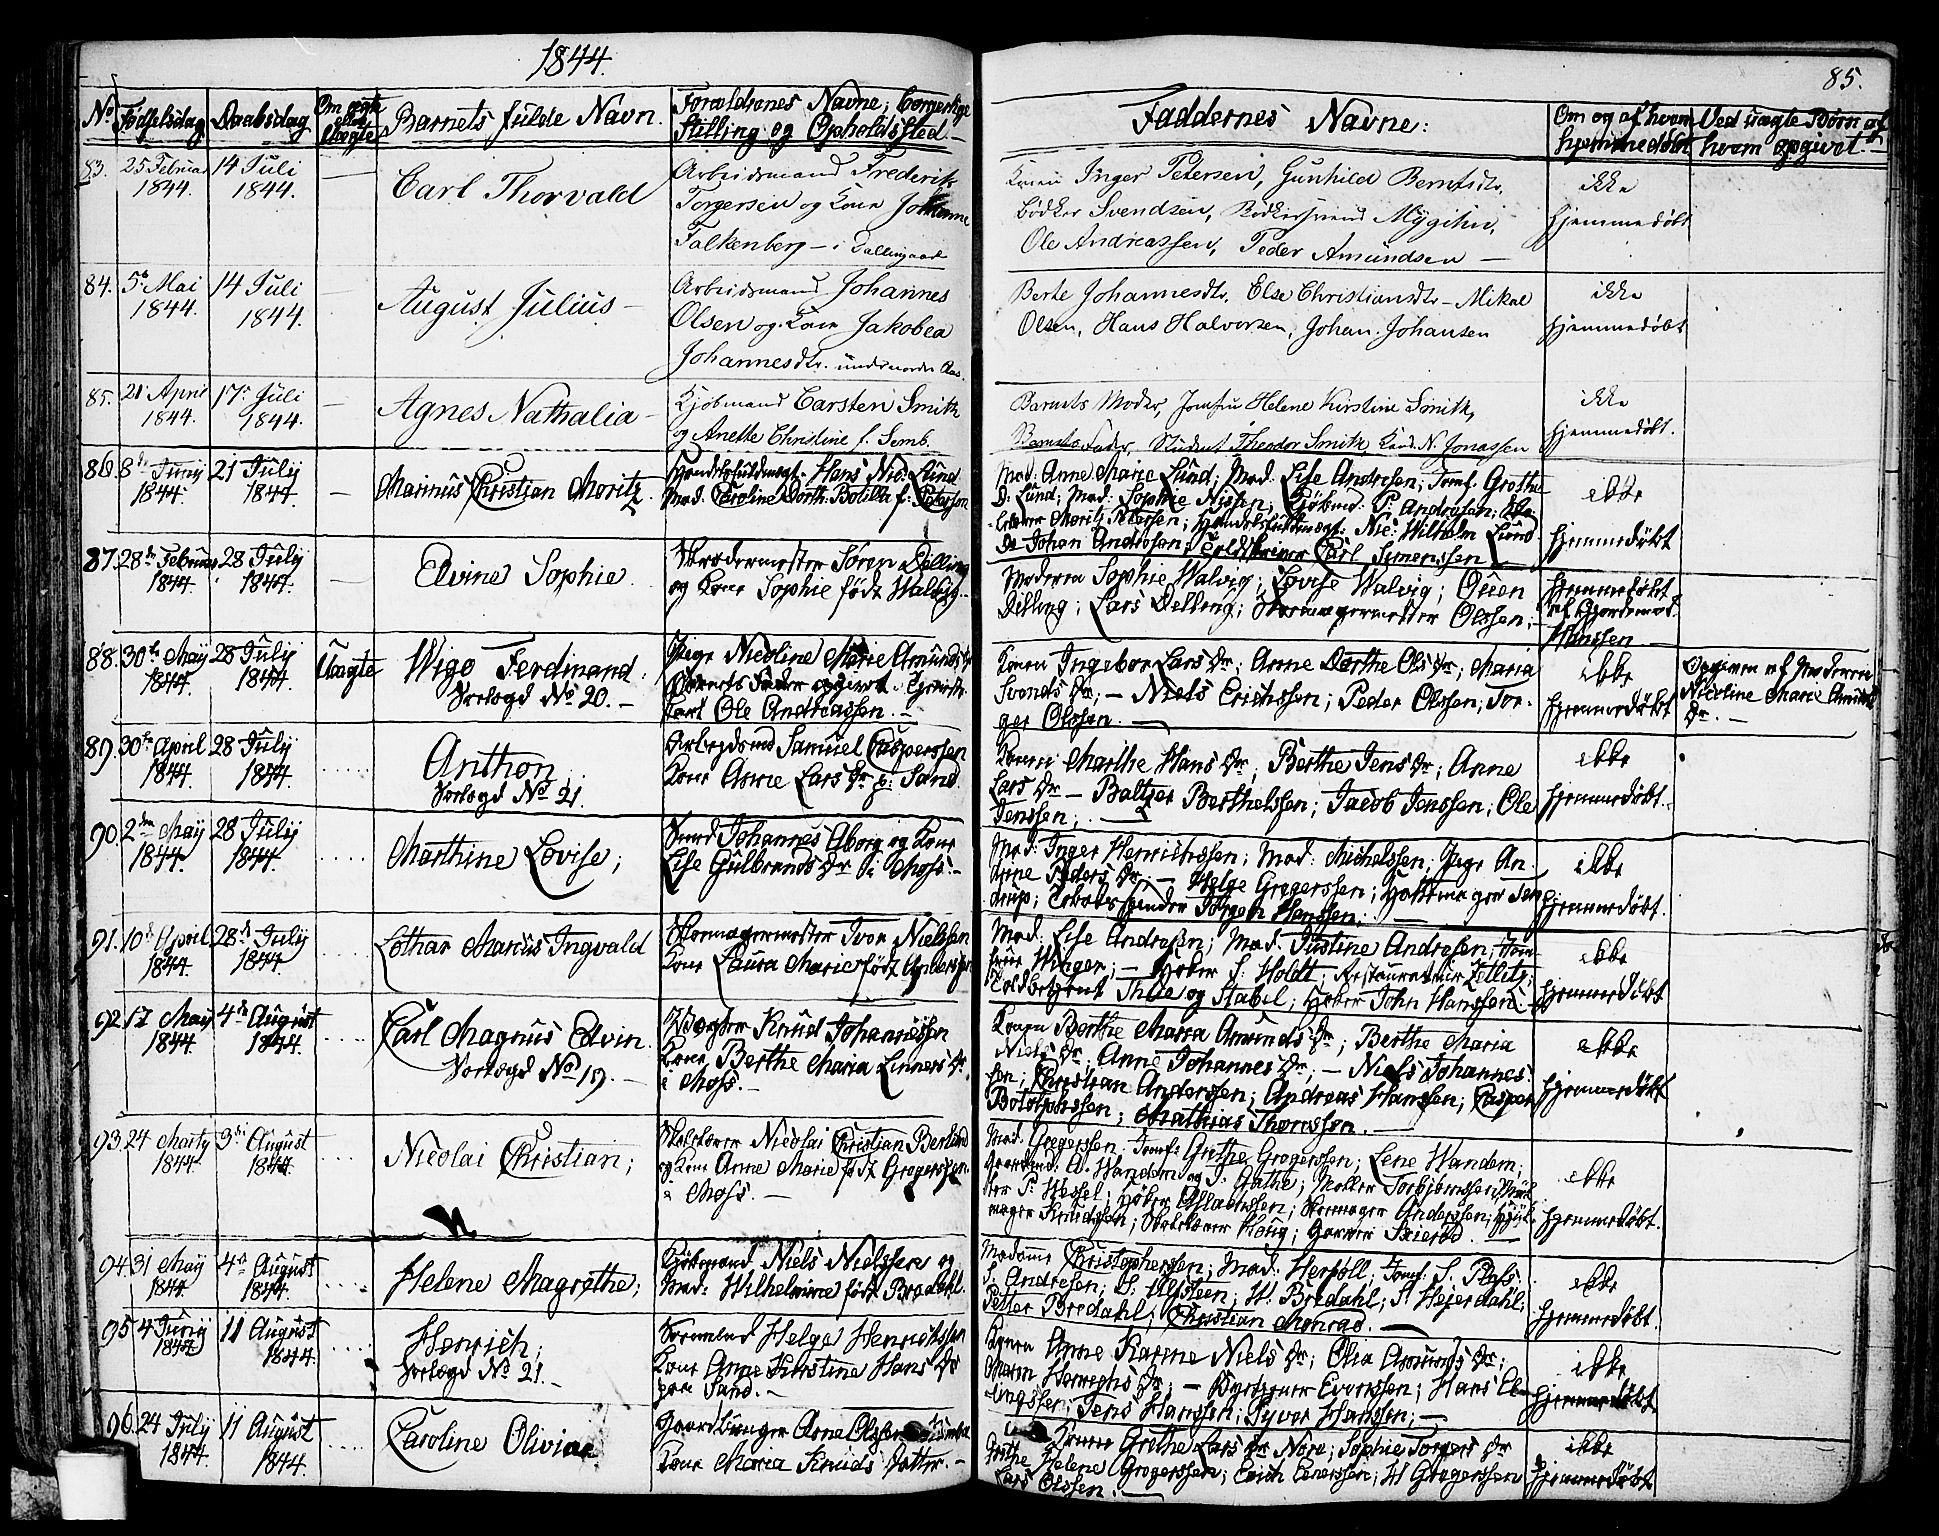 1844.
85.
No Fødselsdag Daabsdag Om ægte eller Uægte Barnets fulde Navn. Forældrenes Navne, borgerlige Stilling og Opholdssted Faddernes Navne: Om og af hvem hjemmedøbt Ved uægte Børn af hvem opgivet.
83. 25 Februar 1844. 14 Juli 1844. — Carl Thorvald
Arbeidsmand Frederik
Torgersen og Kone Johanne
Falkenberg — i
Konen Inger Petersen, Gunhild Berntsdtr,
Bødker Svendsen, Bødkersvend
Ole Andreassen, Peder Amundsen —
ikke
hjemmedøbt
84. 5te Mai 1844. 14 Juli 1844. — August Julius —
Arbeidsmand Johannes
Olsen og Kone Jakobea
Johannesdtr.
Berte Johannesdtr, Else Christiansdtr — Mikal
Olsen, Hans Halvorsen, Johan Johansen
ikke
hjemmedøbt
85. 21 April 1844. 17de Juli 1844. — Agnes Nathalia —
Kjøbmand Carsten Smith
og Anette Christine f. Semb.
Barnets Moder, Jomfru Helene Kirstine Smith,
Barnets Fader, Student Theodor Smith, Kand. N. Jonassen
ikke
hjemmedøbt.
86. 8de Juny 1844. 21 July 1844. — Marinus Christian Moritz.
Handelsfuldmægt. Hans Nic: Lund
Mad. Caroline Dorth. Botilla f. Peterson
Mad: Anne Marie Lund; Mad. Lise Andresen; Jomf. Grethe
D. Lund; Mad: Sophie Nissen; Kjøbmd: P: Andresen;
Moritz Petersen; Handelsfuldmægt. Nic: Wilhelm Lund
Johan Andresen; Toldskriver Carl Simenssen
ikke
hjemmedøbt
87. 28de Februar 1844. 28 July 1844. — Elvine Sophie.
Skrædermester Søren Delling
og Kone Sophie født Walvig. —
Moderen Sophie Walvig; Lovise Walvig;
Delling; Lars Delling; Skomagermester Olssen; —
hjemmedøbt
af Gjordemod.
Hanssen
88. 30te May 1844. 28 July 1844. Uægte Wigo Ferdinand.
Vorlagd No 20. —
Pige Nicoline Marie Amunds Dr
Barnets Fader opgivet
Karl Ole Andreassen. —
Konen Ingebor Lars Dr; Anne Dorthe Ols Dr; Maria
Svends Dr; — Niels Erichssen; Peder Olssen; Tor-
ger Olssen. —
ikke
hjemmedøbt
Opgiven af Moderen
Nicoline Marie Amunds
Dr. —
89. 30te April 1844. 28 July 1844. Anthon
Vorlagd No 21.
Arbeydsmd Samuel Casperssen
Kone Anne Lars Dr p: Sand.
Konen Marthe Hans Dr; Berthe Jens Dr; Anne
Lars Dr — Baltzer Berthelssen; Jacob Jenssen; Ole
Jenssen; —
ikke
hjemmedøbt.
90. 2den May 1844. 28 July 1844. Marthine Lovise;
Smed Johannes Aborg og Kone
Lise Gulbrands Dr i Moss. —
Mad: Inger Henrichssen; Mad: Michelssen; Pige An-
Anne Peders Dr — Helge Gregerssen; Hattemager Jen
drup; Jørgen Hanssen;
ikke
hjemmedøbt.
91. 10de April 1844. 28de July 1844. Lothar Marcus Ingvald
Skomagermester Iver Nielssen
Kone Laura Marie født Anderssen
Mad. Lise Andreßen; Mad. Justine Andresen; Jom-
frue Winger; — Høker S: Holdt Restaurateur Zellitz;
Toldbetjent Thue og Stabel; Høker John Hanssen. —
ikke
hjemmedøbt
92. 17 May 1844. 4de August 1844. Carl Magnus Edvin.
Vorlagd No 19. —
Vægter Knud Johannessen
Kone Berthe Maria Linners Dr.
i Moss. —
Konen Berthe Maria Amunds Dr; Berthe Maria
Niels Dr; Anne Johannes Dr; — Niels Johannes-
sen; Christian Anderssen; Andreas Hanssen; Casper
Botolphssen; Mathias Thomssen. —
ikke
hjemmedøbt
93. 24 Marty 1844. 3die August 1844. Nicolai Christian;
Nicolai Christian Berlund
og Kone Anne Marie født Gregerssen.
i Moss. —
Mad: Gregerssen; Jomf: Grethe Gregerssen; Lene Wandem;
A. Wandem og J: Gathe; Møller Torbjørnssen;
P: Wessel; Høker Aslachssen; Skomager Anderssen; Hjul-
mager Knudssen; Haug; Garver —
ikke
hjemmedøbt.
94. 31 May 1844. 4de August 1844. Helene Magrethe;
Kjøbmand Niels Nielssen og
Mad: Wilhelmine født Bredahl.
Madame Christophersen; Mad: Herføll; Jomf: S. Plass
S. Andresen; D: Ulfsteen; W: Bredahl; S: Hejerdahl;
Petter Bredahl; Christian Monrad. —
ikke
hjemmedøbt.
95 4 Juny 1844. 11 August 1844. Henrich;
Vorlagd No 21. —
Helge Henrichssen
Kone Anne Kirstine Hans Dr
paa Sand. —
Konen Anne Karine Niels Dr; Olia Amunds Dr;
Maren Herweghs Dr; — Evenssen; Hans El-
lingssen; Jens Hanssen; Syver Hanssen; —
ikke
hjemmedøbt.
96. 24 July 1844. 11 August 1844. Caroline Oliviae
Gaardbruger Arne Olssen
Kone Maria Knuds Datter. —
Konen Grethe Lars Dr Nore; Sophie Torgers Dr
Grethe Helene Gregerssen; Erich Enerssen; H Gregerssen
Lars Olssen. —
ikke
hjemmedøbt